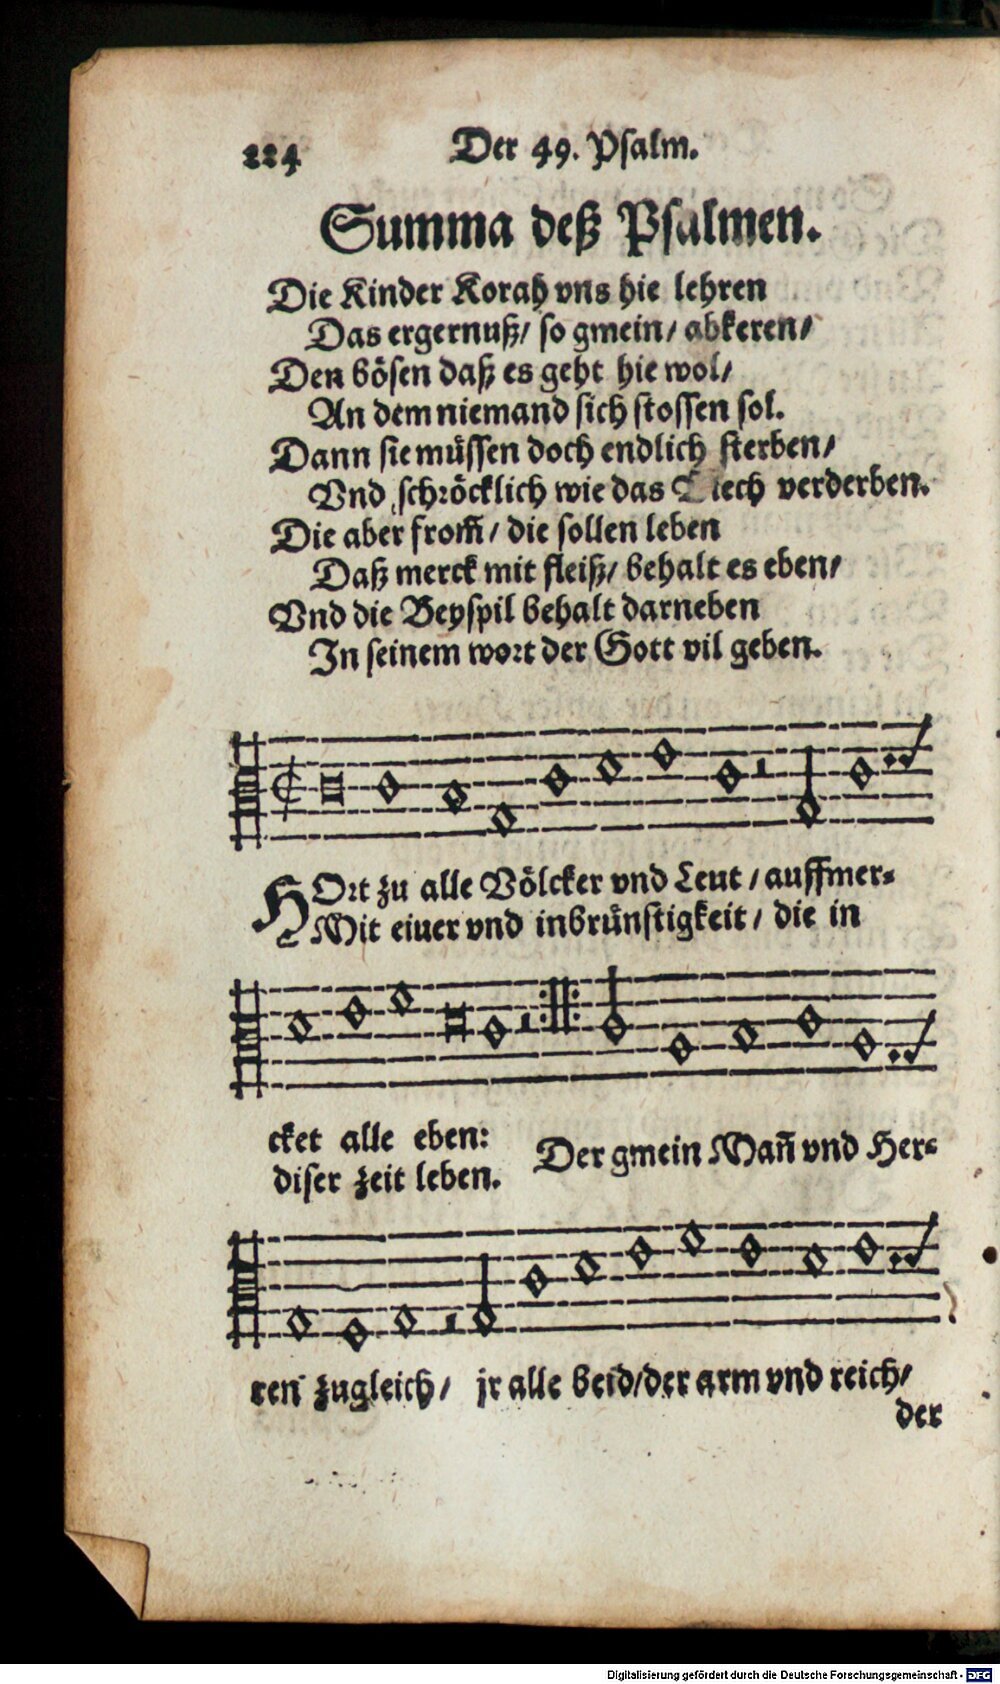 224
Der 49. Psalm.
Summa deß Psalmen.
Die Kinder Korah vns hie lehren
Das ergernuß/ so gmein/ abkeren/
Den bösen daß es geht hie wol/
An dem niemand sich stossen sol.
Dann sie müssen doch endlich sterben/
Vnd schröcklich wie das Viech verderben.
Die aber from̃/ die sollen leben
Daß merck mit fleiß/ behalt es eben/
Vnd die Beyspil behalt darneben
In seinem wort der Gott vil geben.
HOrt zu alle Völcker vnd Leut/ auffmer-
Mit eiuer vnd inbrünstigkeit/ die in
cket alle eben:
diser zeit leben.
Der gmein Mañ vnd Her-
ren zugleich/ jr alle beid/der arm vnd reich/
der
Digitalisierung gefördert durch die Deutsche Forschungsgemeinschaft - DFG